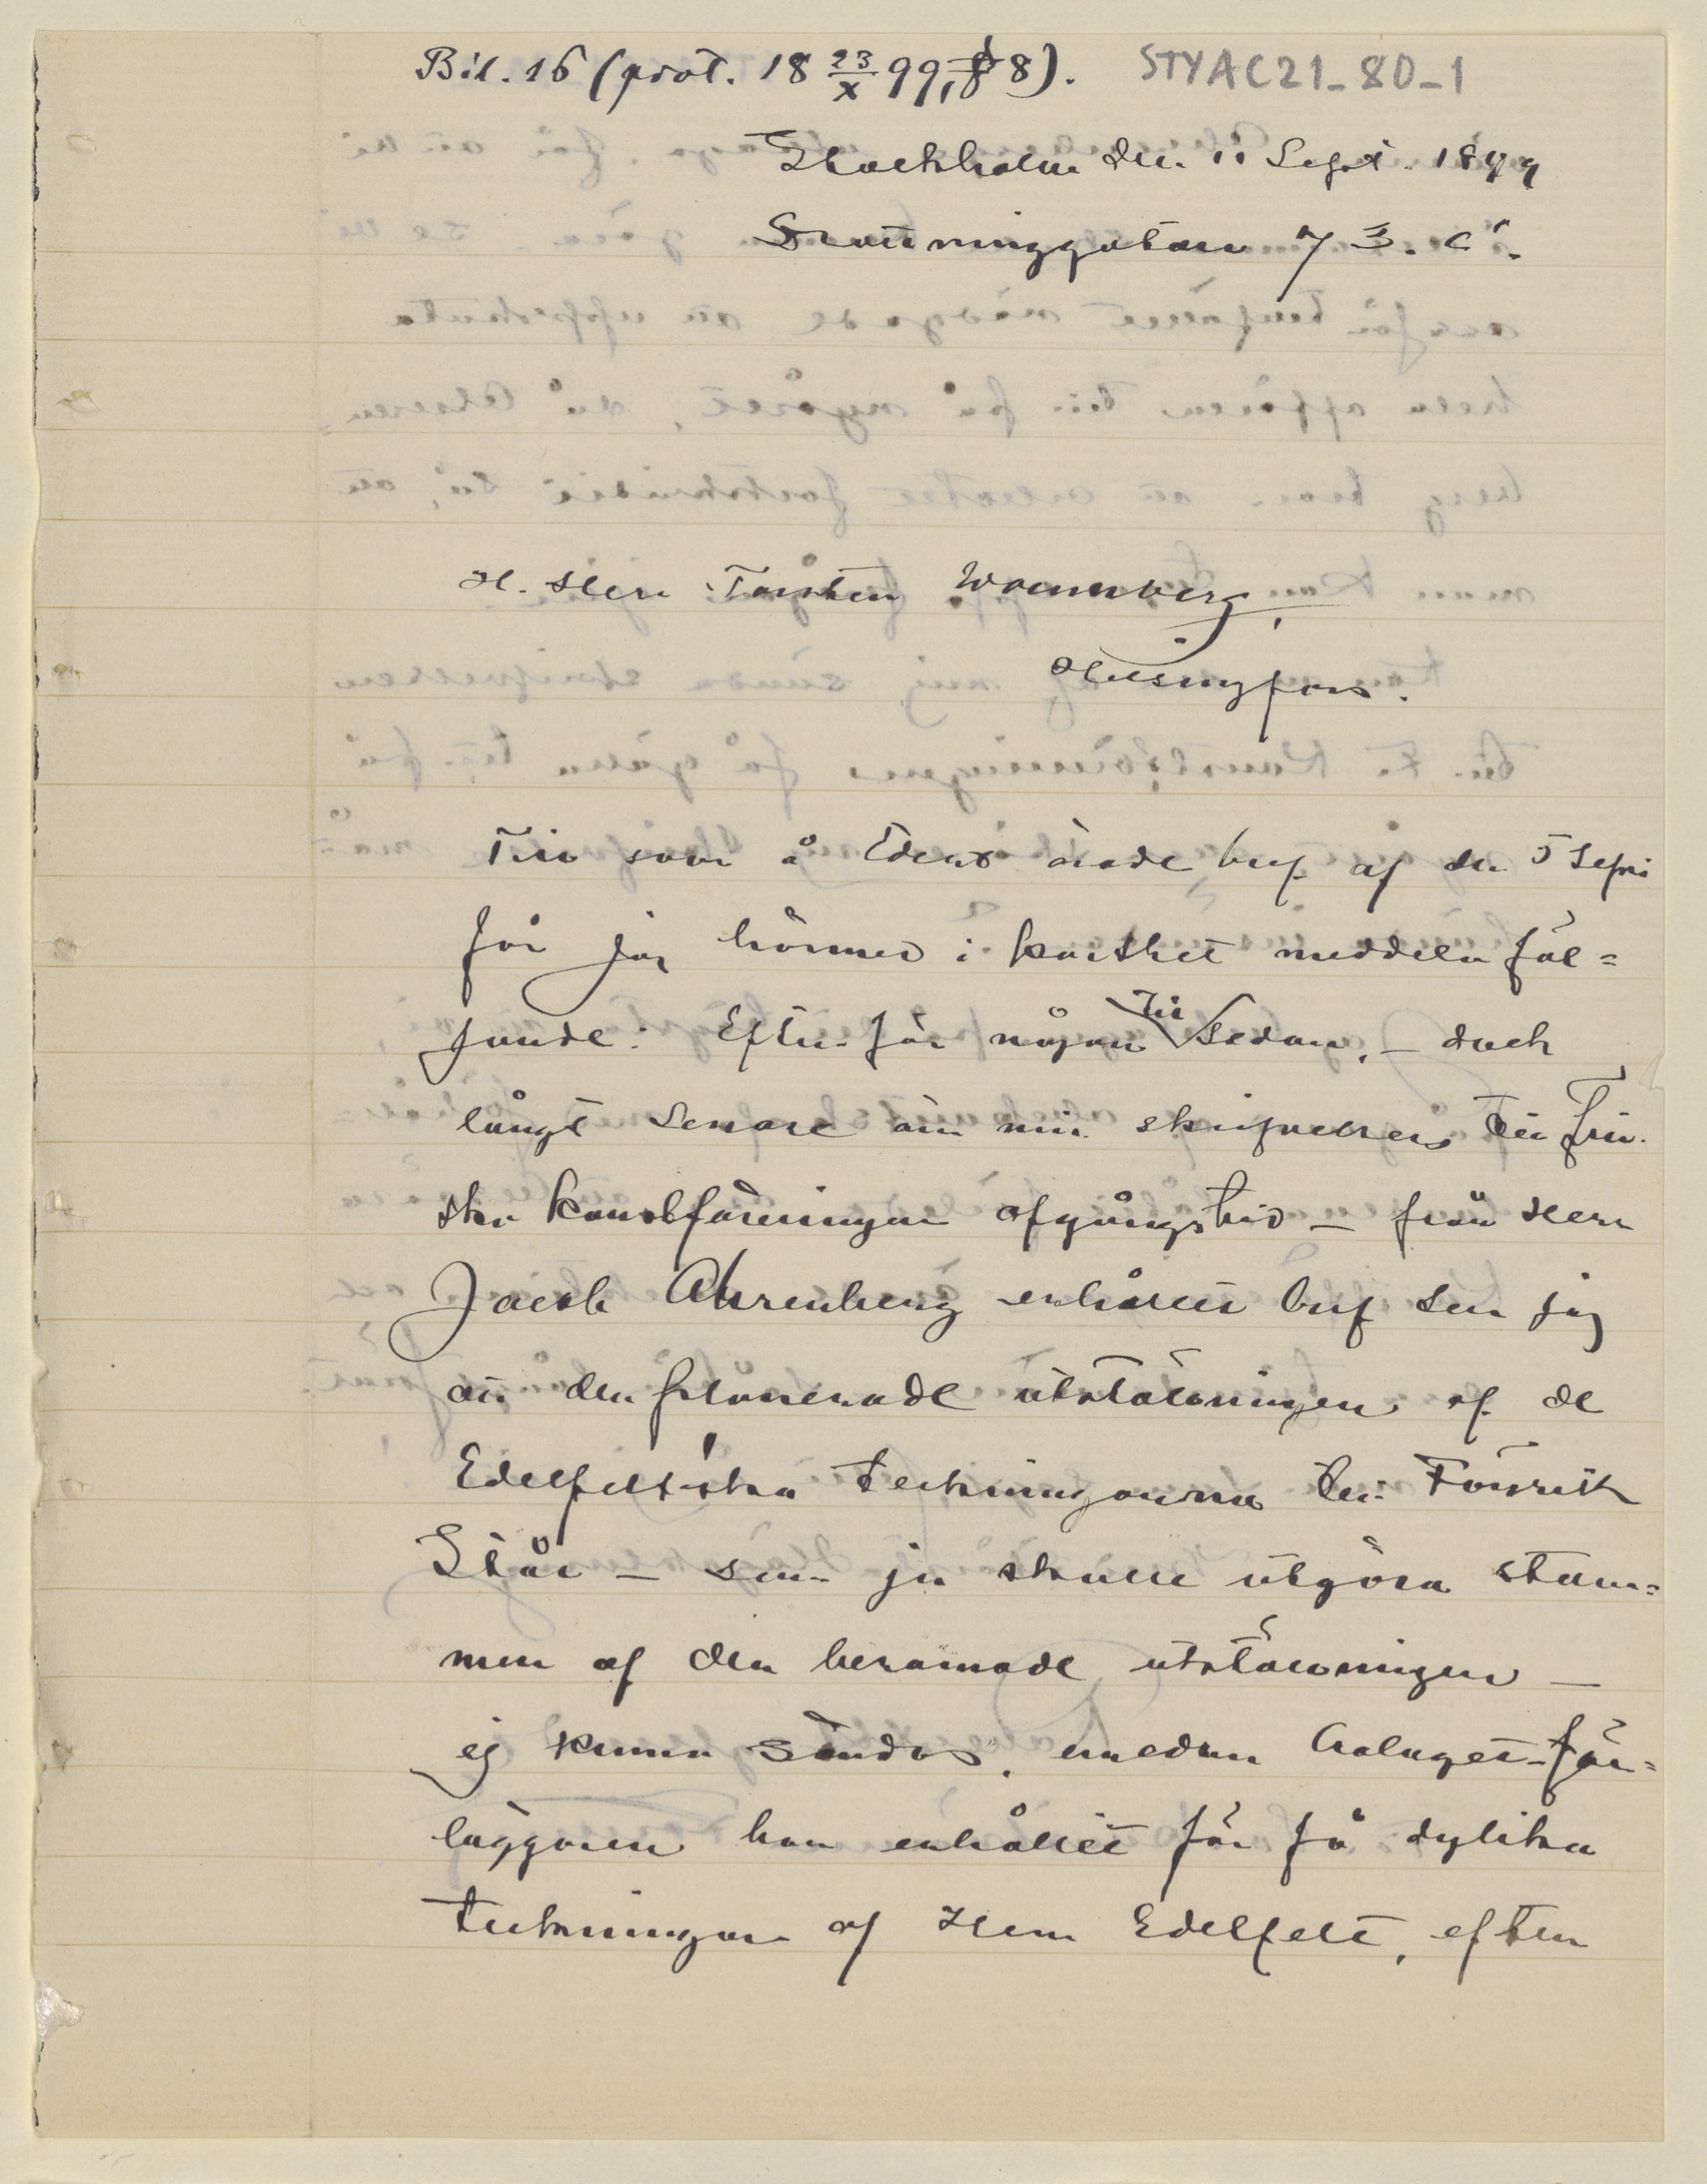 Bil. 16 (prot. 18 23/X 99, § 8). STYAC21_80_1
Stockholm den 11 Sept. 1899
Drottninggatan 7 3. tr.
H. Herr Torsten Waenerberg,
Helsingfors.
Till svar å Edert ärade bref af den 5 Sept
får jag härmed i korthet meddela föl=
jande: Efter för någon tid sedan, – dock
långt senare än min skrifvelse till Fin.
ska Konstföreningen afgångstid – från Herr
Jacob Ahrenberg erhållit bref den jag
att den planerade utställningen af de
Edelfelt'ska teckningarna till Fänrik
Stål – som ju skulle utgöra stam=
men af den beramade utställningen –
ej kunna sändas, emedan bolaget-för=
läggaren har erhållit för få dylika
teckningar af Herr Edelfelt, efter